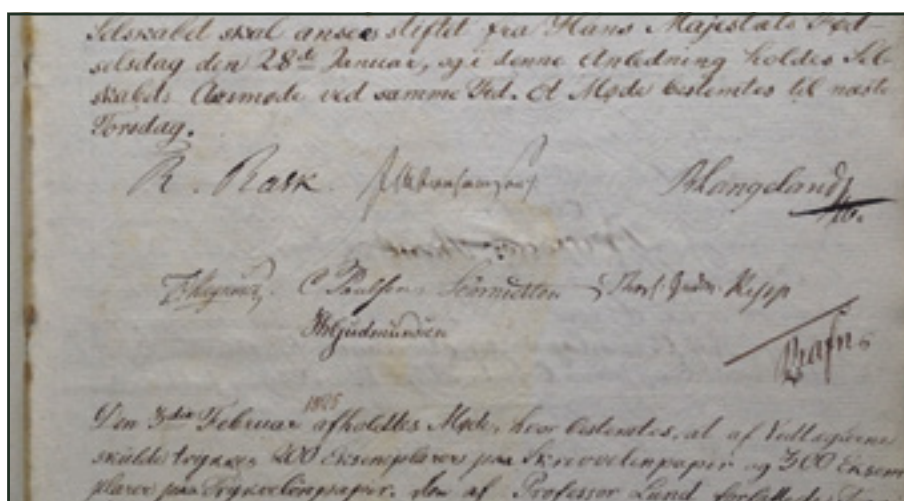 Selskabet skal ansees stiftet fra Hans Majestæts Fød-
selsdag den 28de Januar, og i denne Anledning holdes Sel-
skabets Aarsmøde ved samme Tid. Et Møde bestemtes til næste
Torsdag.
R. Rask.
C Paulsen
Thorl. Gudm. Repp
ThGudmundsen
Rafn
Den 3die Februar 1825 afholdtes Møde, hvor bestemtes, at af
skulde trykkes 200 Exemplarer paa Skrivvelinpapir og 300 Exem-
plarer paa Trykvelinpapir. den af Professor Lund